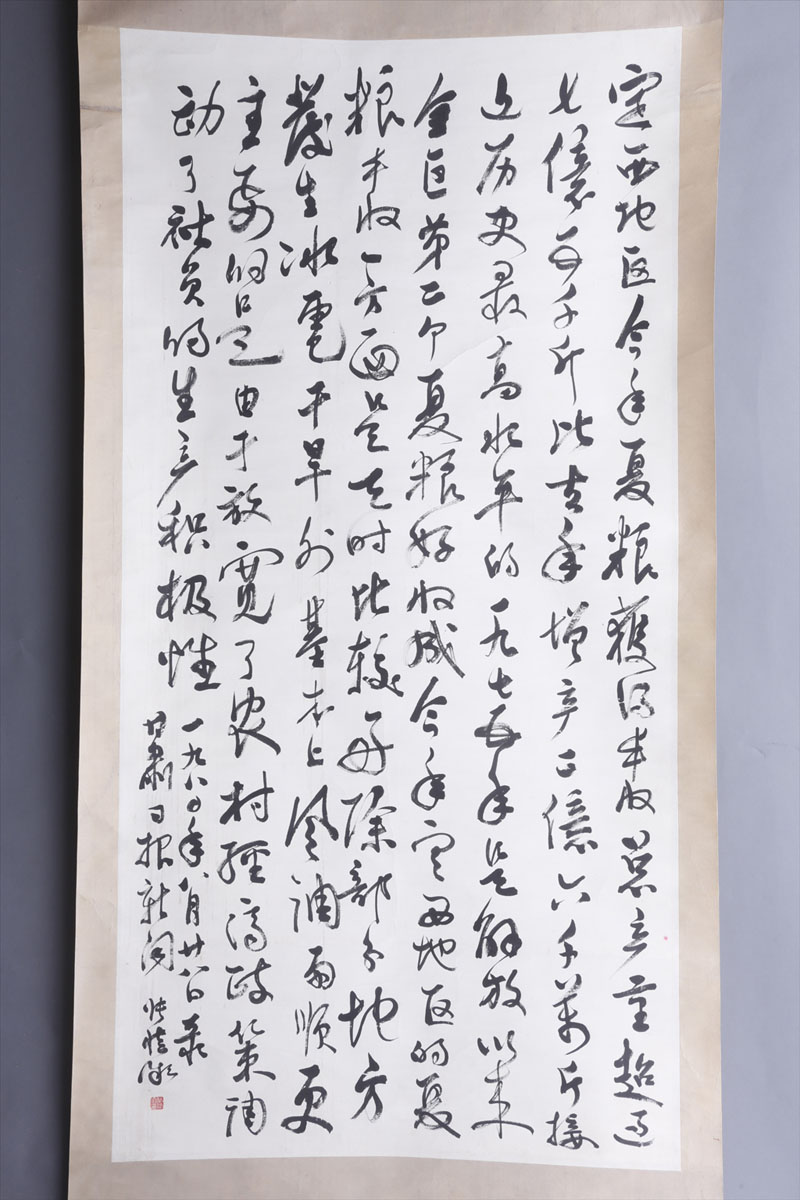 定西地区今年夏粮获得丰收总产量超过
七億五千斤比去年增产二億六千萬斤接
近历史最高水平的一九七五年是解放以来
全区第二个夏粮好收成今年定西地区的夏
粮丰收一方面是天时比较好除部分地方
發生冰雹干旱外基本上風调雨顺更
重要的是由于放寬了农村經济政策调
动了社员的生产积极性
一九八〇年八月廿八日录
甘肃日报新闻